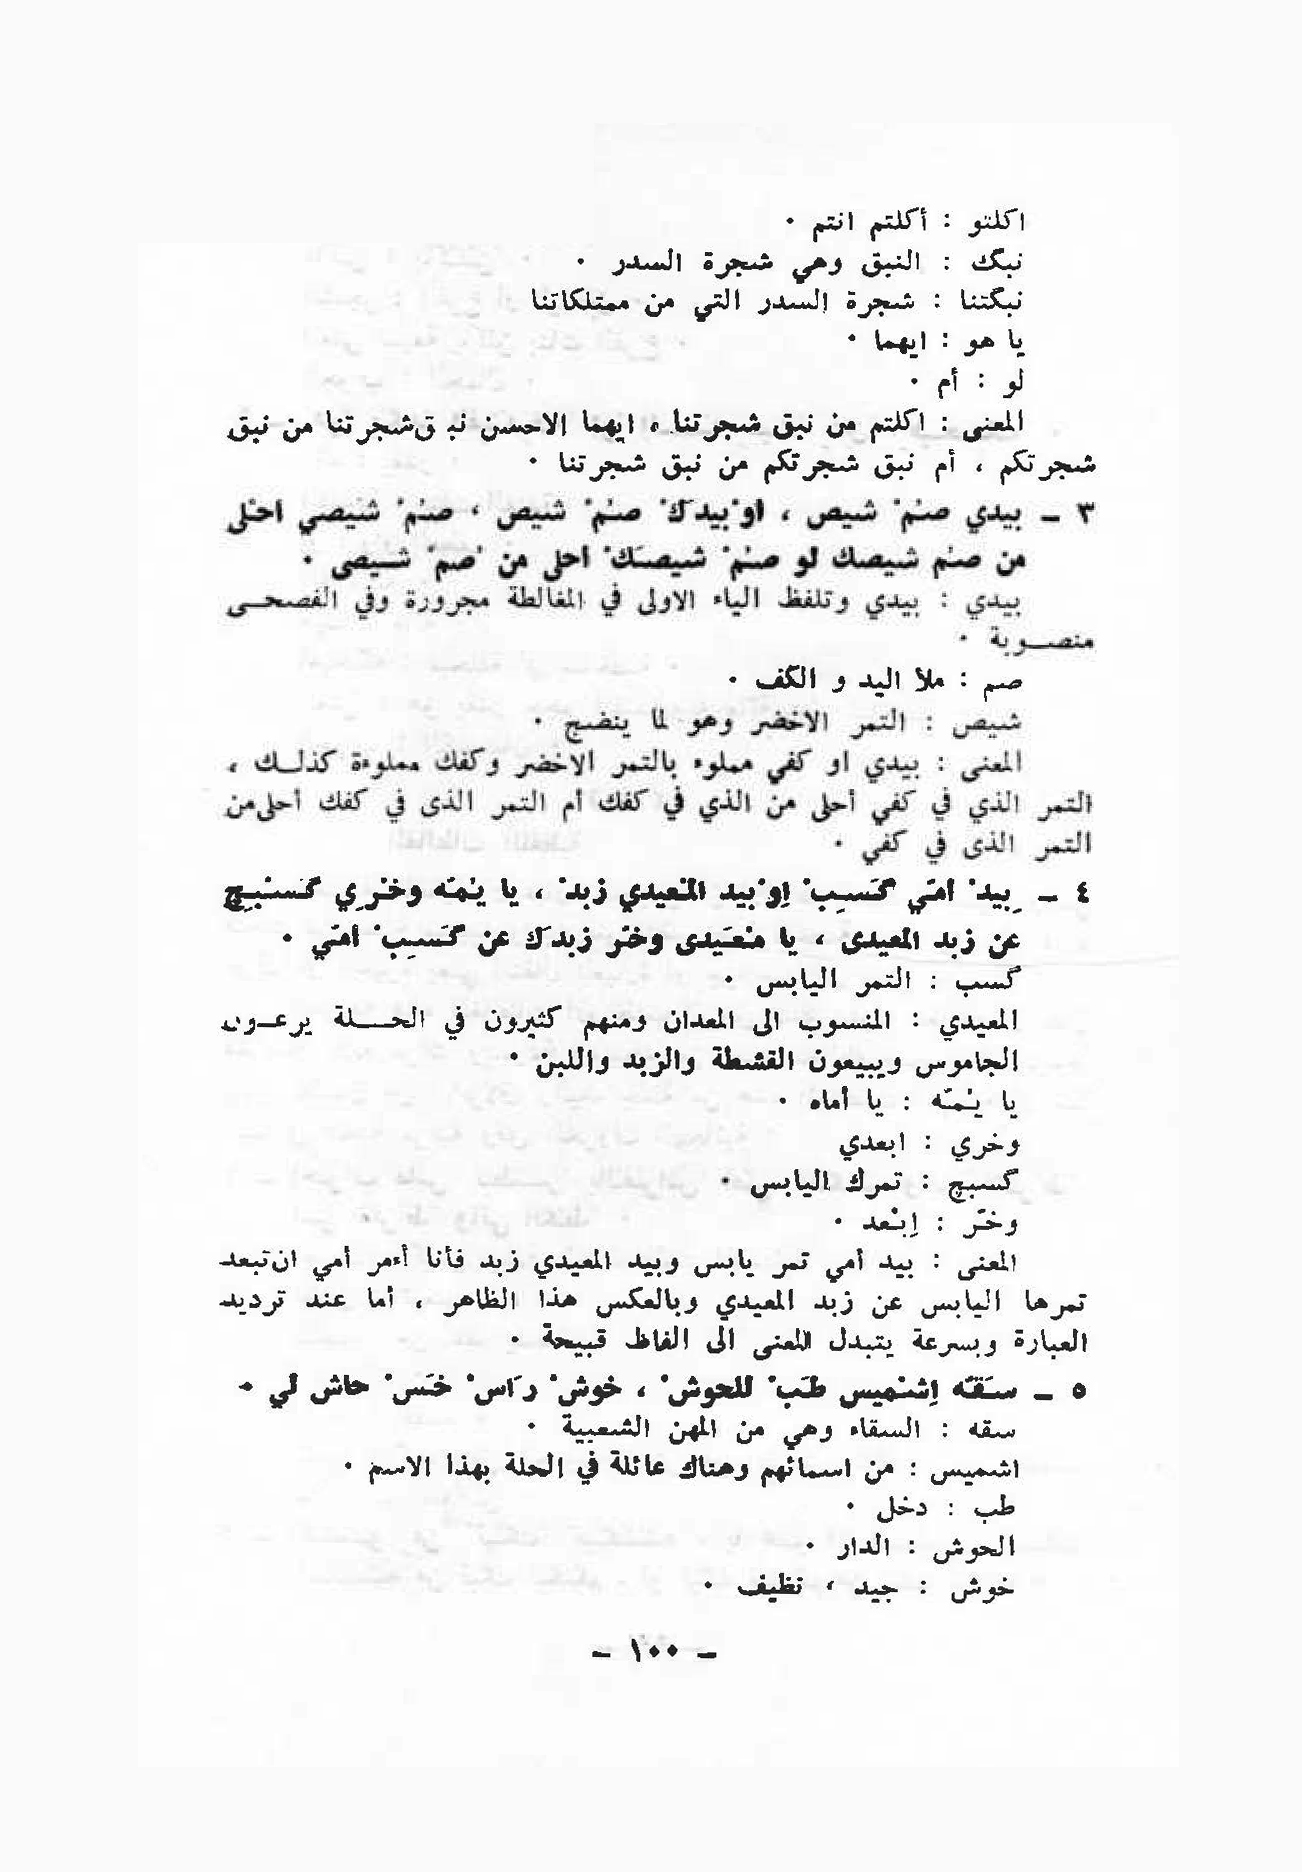 اكلتو : أكلتم انتم ٠
نبگك : النبق وهي شجرة السدر ٠
نبگتنا : شجرة السدر التي من ممتلكاتنا
يا هو : ايهما ٠
لو : أم ٠
المعنى : اكلتم من نبق شجرتنا ، ايهما الاحسن نبق شجرتنا من نبق
شجرتكم ، أم نبق شجرتكم من نبق شجرتنا ٠
٣ – بيدي صنمْ شيص ، اوْبيدكْ صنمْ شنيص ، صنمْ شنيصي احْلى
من صنم شيصك لو صنمْ شيصكْ أحلى من صمْ شيصى ٠
بيدي : بيدي وتلفظ الياء الاولى في المغالطة مجرورة وفي الفصحى
منصوبة ٠
صم : ملأ اليد و الكف ٠
شيص : التمر الاخضر وهو لما ينضج ٠
المعنى : بيدي او كفي مملوء بالتمر الاخضر وكفك مملوءة كذلك ،
التمر الذي في كفي أحلى من الذي في كفك أم التمر الذى في كفك أحلى من
التمر الذى في كفي ٠
٤ – بِيدْ أمّي گسِبْ اِوْبيد المْعيدي زبدْ ، يا يُمّه وخْرِي گسْبِچ
عن زبد المعيدى ، يا مْعيدى وخّر زبدك عن گسِبْ أمّي ٠
گسب : التمر اليابس ٠
المعيدي : المنسوب الى المعدان ومنهم كثيرون في الحلة يرعون
الجاموس ويبيعون القشطة والزبد واللبن ٠
يا يُمّه : يا أماه ٠
وخري : ابعدي
گسبچ : تمرك اليابس ٠
وخّر : اِبْعد ٠
المعنى : بيد أمي تمر يابس وبيد المعيدي زبد فأنا أءمر أمي ان تبعد
تمرها اليابس عن زبد المعيدي وبالعكس هذا الظاهر ، أما عند ترديد
العبارة وبسرعة يتبدل المعنى الى الفاظ قبيحة ٠
٥ – سقّه اِشْميس طبْ للحوشْ ، خوشْ راسْ خسْ حاش لي ٠
سقه : السقاء وهي من المهن الشعبية ٠
اشميس : من اسمائهم وهناك عائلة في الحلة بهذا الاسم ٠
طب : دخل ٠
الحوش : الدار ٠
خوش : جيد ، نظيف ٠
– ١٠٠ –